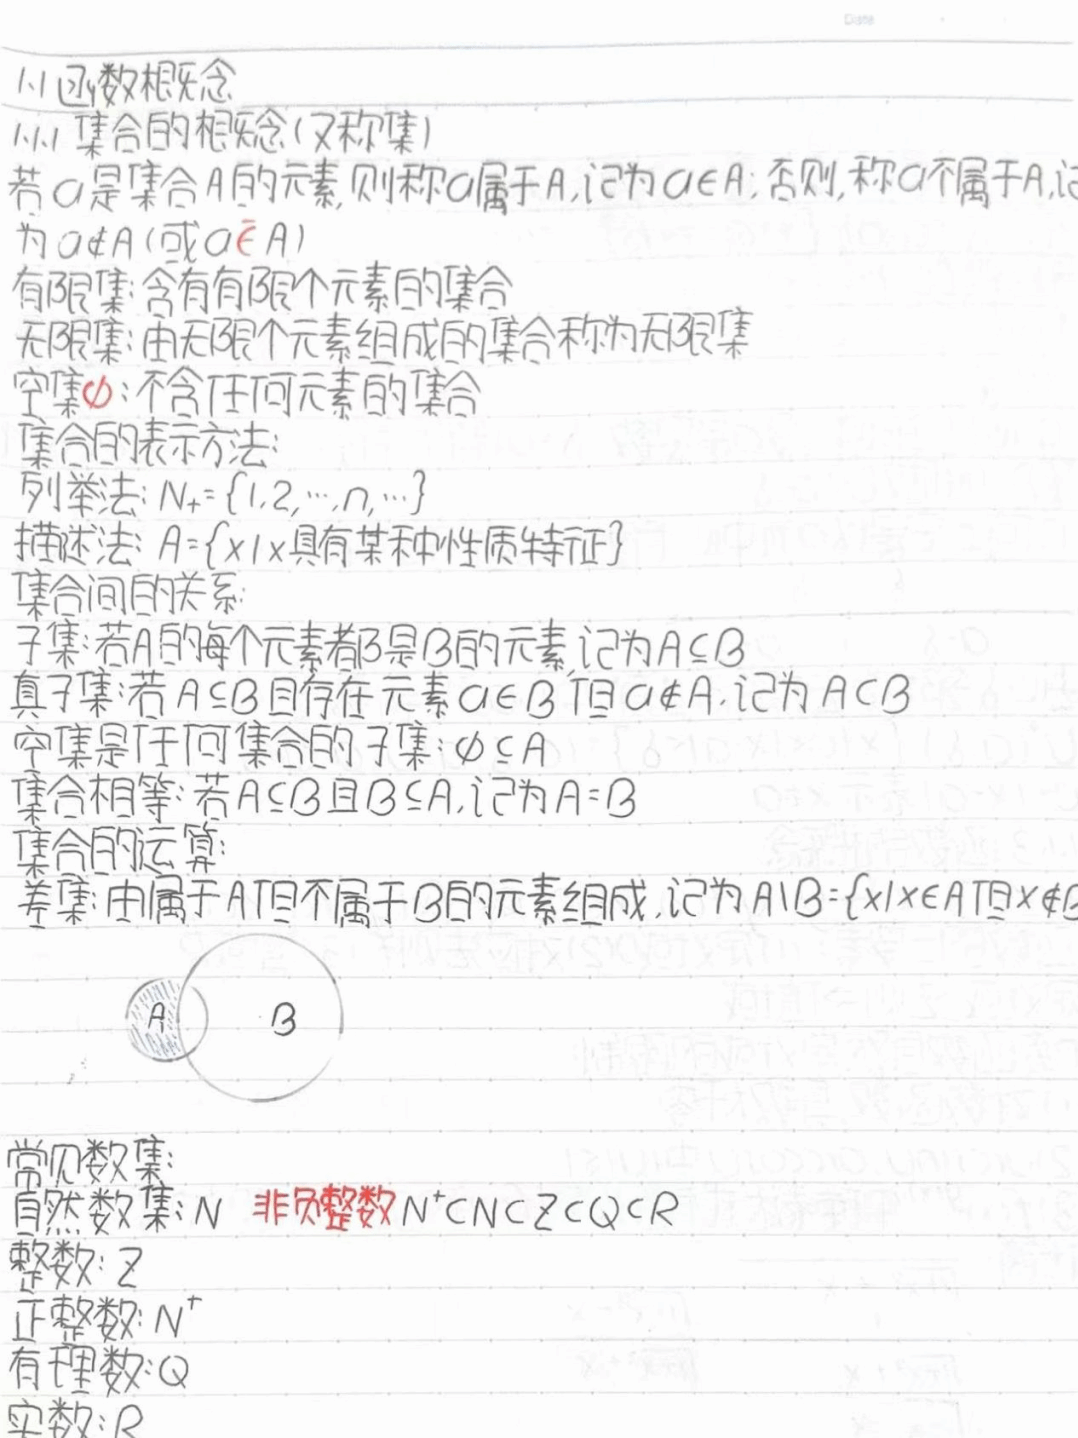 Date
1.1 函数概念
1.1.1 集合的概念(又称集)
若a是集合A的元素,则称a属于A,记为a∈A;否则,称a不属于A,记
为a∉A(或a∈̄A)
有限集:含有有限个元素的集合
无限集:由无限个元素组成的集合称为无限集
空集φ:不含任何元素的集合
集合的表示方法:
列举法:N₊={1,2,…,n,…}
描述法:A={x|x具有某种性质特征}
集合间的关系:
子集:若A的每个元素都是B的元素,记为A⊆B
真子集:若A⊆B且存在元素a∈B但a∉A,记为A⊂B
空集是任何集合的子集:φ⊂A
集合相等:若A⊆B且B⊆A,记为A=B
集合的运算:
差集:由属于A但不属于B的元素组成,记为A\B={x|x∈A但x∉B
A B
常见数集:
自然数集:N 非负整数 N⁺⊂N⊂Z⊂Q⊂R
整数:Z
正整数:N⁺
有理数:Q
实数:R